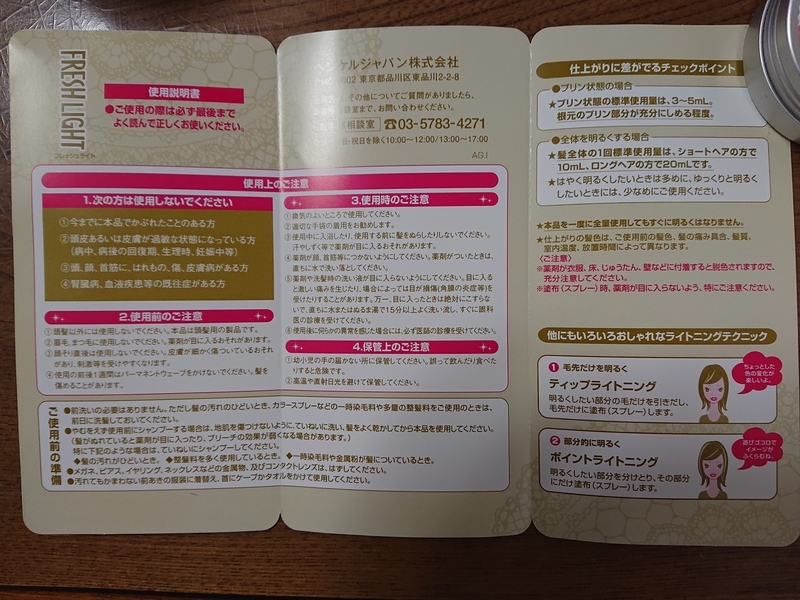 FRESHLIGHT
フレッシュライト
使用説明書
●ご使用の際は必ず最後まで
よく読んで正しくお使いください。
ケルジャパン株式会社
002 東京都品川区東品川2-2-8
その他についてご質問がありましたら、
談室まで、お問い合わせください。
相談室 ☎03-5783-4271
日・祝日を除く10:00〜12:00/13:00〜17:00
AGJ
使用上のご注意
1.次の方は使用しないでください
①今までに本品でかぶれたことのある方
②頭皮あるいは皮膚が過敏な状態になっている方
(病中、病後の回復期、生理時、妊娠中等)
③頭、顔、首筋に、はれもの、傷、皮膚病がある方
④腎臓病、血液疾患等の既往症がある方
2.使用前のご注意
①頭髪以外には使用しないでください。本品は頭髪用の製品です。
②眉毛、まつ毛に使用しないでください。薬剤が目に入るおそれがあります。
③顔そり直後は使用しないでください。皮膚が細かく傷ついているおそれ
があり、刺激等を受けやすくなります。
④使用の前後1週間はパーマネントウェーブをかけないでください。髪を
傷めることがあります。
3.使用時のご注意
①換気のよいところで使用してください。
②適切な手袋の着用をお勧めします。
③使用中に入浴したり、使用する前に髪をぬらしたりしないでください。
汗やしずく等で薬剤が目に入るおそれがあります。
④薬剤が顔、首筋等につかないようにしてください。薬剤がついたときは、
直ちに水で洗い落としてください。
⑤薬剤や洗髪時の洗い液が目に入らないようにしてください。目に入る
と激しい痛みを生じたり、場合によっては目が損傷(角膜の炎症等)を
受けたりすることがあります。万一、目に入ったときは絶対にこすらな
いで、直ちに水またはぬるま湯で15分以上よく洗い流し、すぐに眼科
医の診療を受けてください。
⑥使用後に何らかの異常を感じた場合には、必ず医師の診療を受けてください。
4.保管上のご注意
①幼小児の手の届かない所に保管してください。誤って飲んだり食べた
りすると危険です。
②高温や直射日光を避けて保管してください。
ご使用前の準備
●前洗いの必要はありません。ただし髪の汚れのひどいとき、カラースプレーなどの一時染毛料や多量の整髪料をご使用のときは、
前日に洗髪しておいてください。
●やむをえず使用前にシャンプーする場合は、地肌を傷つけないように、ていねいに洗い、髪をよく乾かしてから本品を使用してください。
(髪がぬれていると薬剤が目に入ったり、ブリーチの効果が弱くなる場合があります。)
特に下記のような場合は、ていねいにシャンプーしてください。
◆髪の汚れがひどいとき。 ◆整髪料を多く使用しているとき。 ◆一時染毛料や金属粉が髪についているとき。
●メガネ、ピアス、イヤリング、ネックレスなどの金属物、及びコンタクトレンズは、はずしてください。
●汚れてもかまわない前あきの服装に着替え、首にケープかタオルをかけて使用してください。
仕上がりに差がでるチェックポイント
○プリン状態の場合
★プリン状態の標準使用量は、3〜5mL。
根元のプリン部分が充分にしめる程度。
○全体を明るくする場合
★髪全体の1回標準使用量は、ショートヘアの方で
10mL、ロングヘアの方で20mLです。
★はやく明るくしたいときは多めに、ゆっくりと明るく
したいときには、少なめにご使用ください。
★本品を一度に全量使用してもすぐに明るくはなりません。
★仕上がりの髪色は、ご使用前の髪色、髪の痛み具合、髪質、
室内温度、放置時間によって異なります。
〈ご注意〉
※薬剤が衣服、床、じゅうたん、壁などに付着すると脱色されますので、
充分注意してください。
※塗布(スプレー)時、薬剤が目に入らないよう、特にご注意ください。
他にもいろいろおしゃれなライトニングテクニック
1 毛先だけを明るく
ティップライトニング
明るくしたい部分の毛束を引きだし、
毛先だけに塗布(スプレー)します。
ちょっとした
色の変化が
楽しいよ。
2 部分的に明るく
ポイントライトニング
明るくしたい部分を分けとり、その部分
にだけ塗布(スプレー)します。
遊びゴコロで
イメージが
ふくらむね。